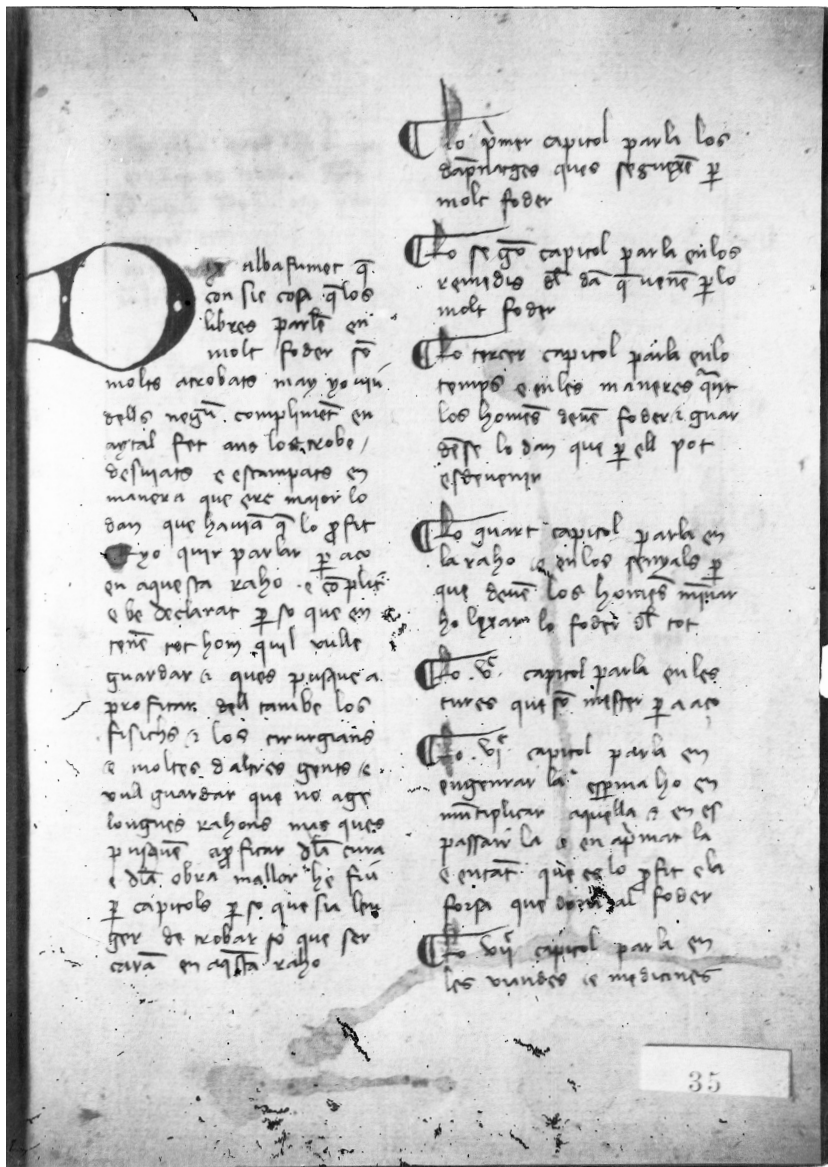 Dix albafumet q̄
con sie cosa q̄ los
libres parlē en
molt foder sō
molts atrobats may yo viu
dells negū complimēt en
aytal fet ans los trobe
desviats e escampats en
manera que ere maior lo
dan que haviā q̄ lo ꝓfit
yo quir parlar ꝑ aço
en aquesta raho e cōplit
e be declarat ꝑ so que en
tenē tot hom quil vulle
guardar e ques pusque a
profitar dell tambe los
fisichs e los cirurgians
e moltes daltres gents e
vull guardar que no age
longues rahons mas ques
puiquē aꝓfitar dl̄a cura
e dl̄a obra mallor he fiu
ꝑ capitols ꝑ so que sia leu
ger de trobar so que ser
caran en aq̄sta raho
Lo pͥmer capitol parla los
dāpnatges ques seguexē ꝑ
molt foder
Lo segō capitol parla en los
remedis dl̄ dā q̄ venē ꝑ lo
molt foder
Lo tercer capitol parla en lo
temps e en les maneres qͣnt
los homēs devē foder e guar
dēse lo dan que ꝑ ell pot
esdevenir
Lo quart capitol parla en
la raho e en los senyals ꝑ
que devē los homēs minvar
ho lexar lo foder dl̄ tot
Lo .vͤ. capitol parla en les
cures que sō mester ꝑ a aço
Lo .viͤ. capitol parla en
engenrar la esperma ho en
multiplicar aquella e en es
passair la e en apͥmar la
e entāt que es lo ꝓfit e la
forsa que dona al foder
Lo viiͤ capitol parla en
les viandes e medicines
35